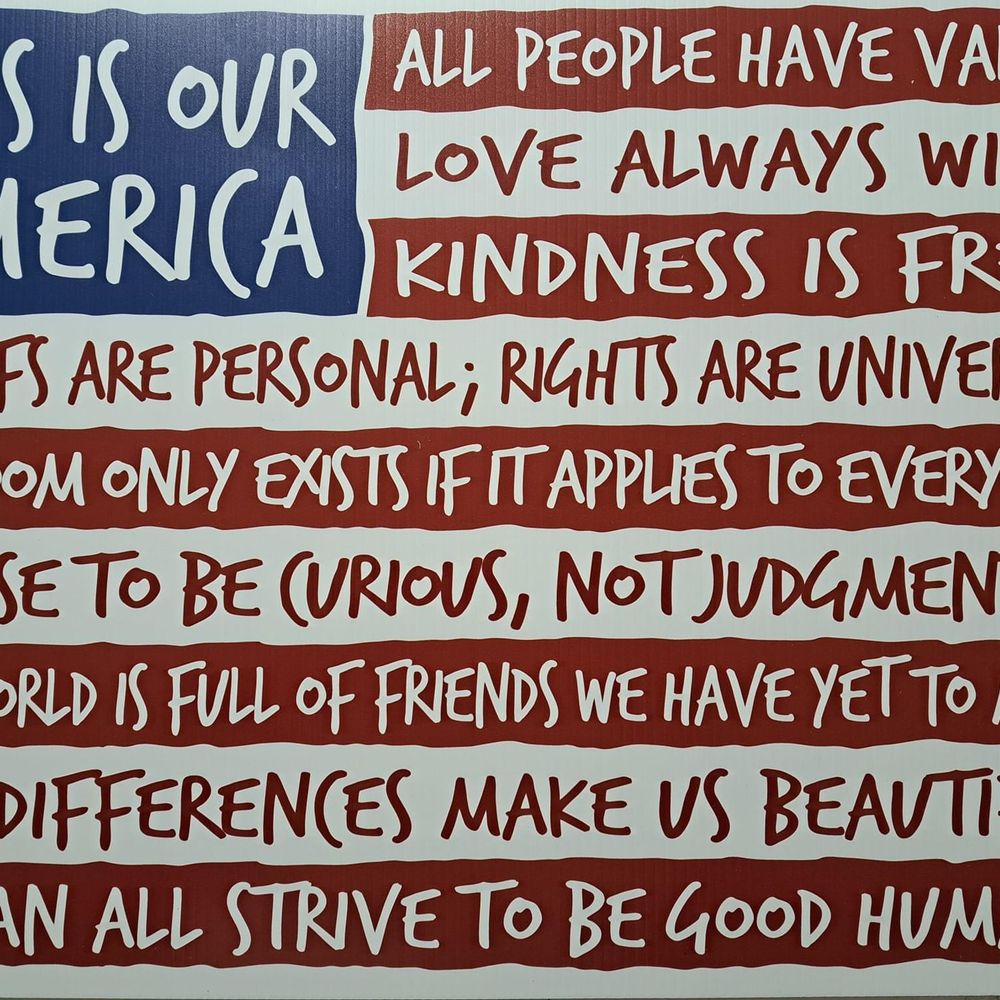 S IS OUR
MERICA
ALL PEOPLE HAVE VA
LOVE ALWAYS WI
KINDNESS IS FRE
FS ARE PERSONAL; RIGHTS ARE UNIVER
OM ONLY EXISTS IF IT APPLIES TO EVERY
SE TO BE CURIOUS, NOT JUDGMEN
ORLD IS FULL OF FRIENDS WE HAVE YET TO
DIFFERENCES MAKE US BEAUTI
AN ALL STRIVE TO BE GOOD HUM